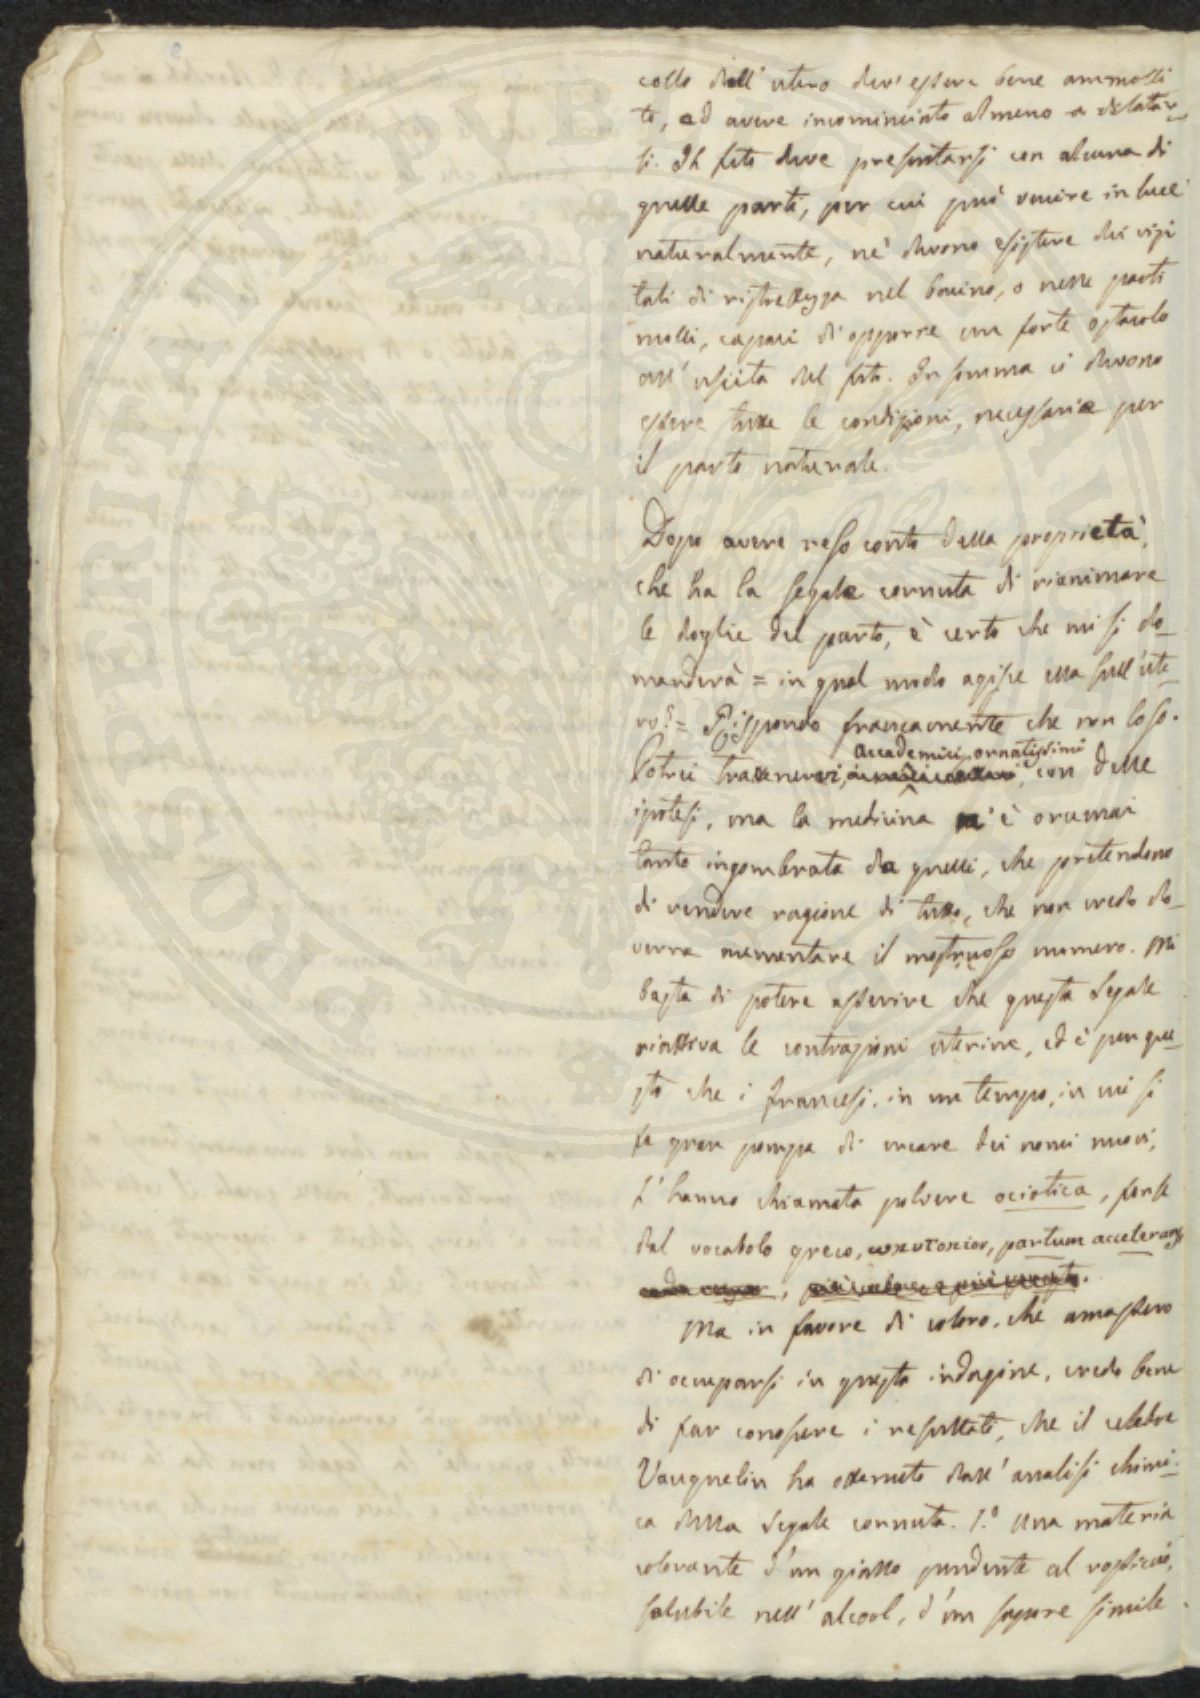 collo dell' utero dev' essere bene ammolli
to, ed avere incominciato almeno a dilatar-
si. Il feto deve presentarsi con alcuna di
quelle parti, per cui può venire in luce
naturalmente, nè devono esistere dei vizi
tali di ristrettezza nel bacino, o nelle parti
molli, capaci di opporre un forte ostacolo
all' uscita del feto. In somma vi devono
essere tutte le condizioni, necessarie per
il parto naturale.
Dopo avere reso conto della proprietà,
che ha la segale cornuta di rianimare
le doglie del parto, è certo che mi si do-
manderà = in qual modo agisce ella sull' ute-
ro? = Rispondo francamente che non lo so.
accademici ornatissimi
Potrei trattenervi, con delle
ipotesi, ma la medicina n' è oramai
tanto ingombrata da quelli, che pretendono
di rendere ragione di tutto, che non credo do-
verne aumentare il mostruoso numero. Mi
basta di potere asserire che questa segale
riattiva le contrazioni uterine, ed è per que-
sto che i francesi, in un tempo, in cui si
fa gran pompa di creare dei nomi nuovi,
l' hanno chiamata polvere ociotica, forse
dal vocabolo greco, ωκυτοκιον, partum accelerans
Ma in favore di coloro, che amassero
di occuparsi in questa indagine, credo bene
di far conoscere i resultati, che il celebre
Vauquelin ha ottenuto dall' analisi chimi-
ca della segale cornuta. 1.° Una materia
colorante d' un giallo pendente al rossiccio,
solubile nell' alcool, d' un sapore simile